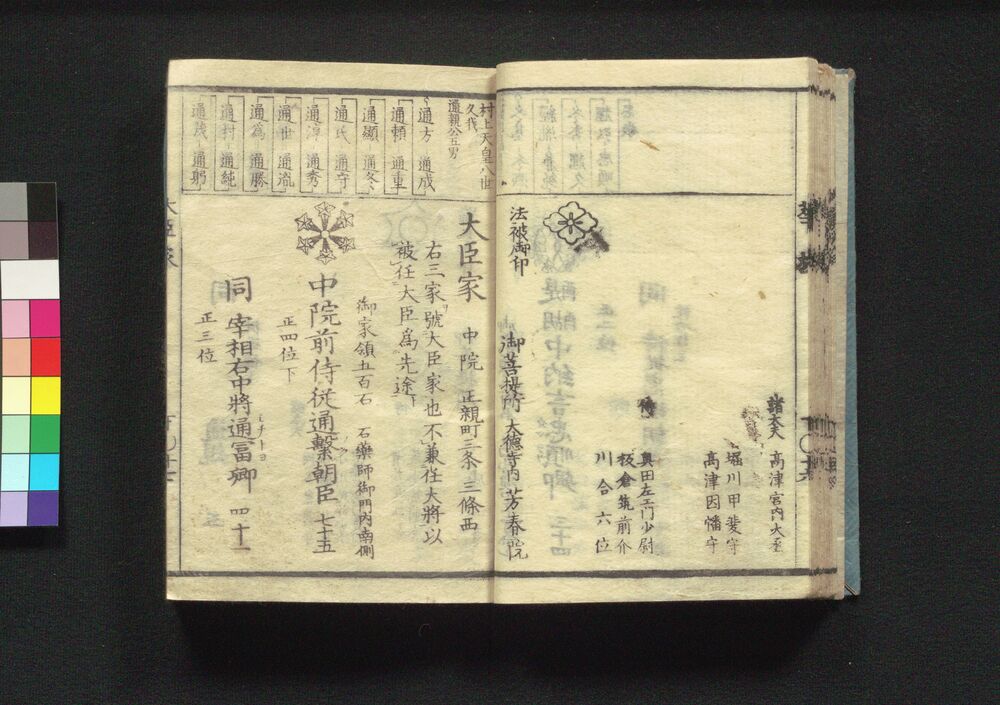 諸大夫 高津宮内大丞
堀川甲斐守
高津因幡守
侍 奥田左エ門少尉
板倉筑前介
川合六位
法被御印
御菩提所 大徳寺内 芳春院
村上天皇八世
久我
通親公五男
通方 通成
通頼 通重
通顕 通冬
通氏 通守
通淳 通秀
通世 通胤
通為 通勝
通村 通純
通茂 通躬
大臣家 中院 正親町三条 三條西
右三家號大臣家也不兼任大將以
被任大臣爲先途
御家領五百石 石薬師御門内南側
中院前侍従通繋朝臣 七十五
正四位下
同 宰相右中將通冨卿 四十一
ミチトヨ
正三位